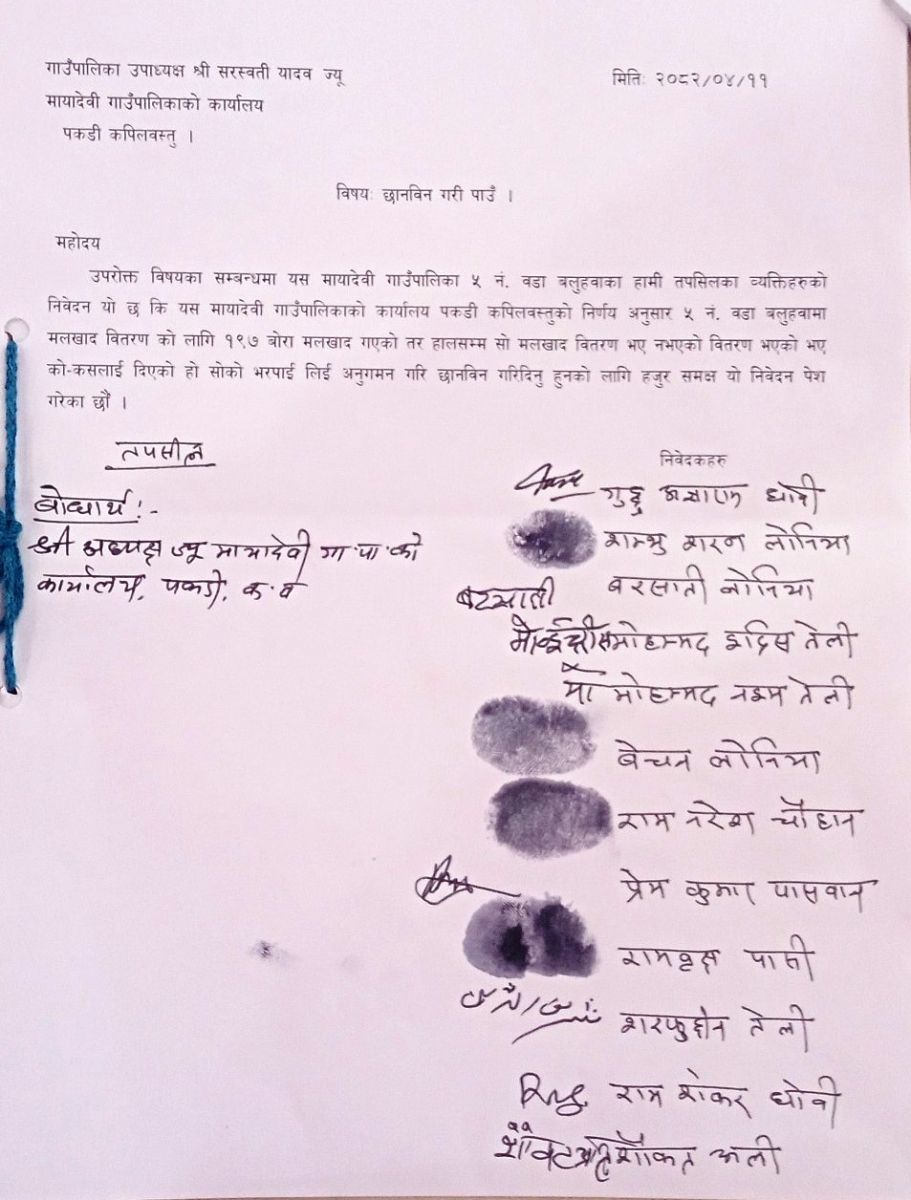 गाउँपालिका उपाध्यक्ष श्री सरस्वती यादव ज्यू
मितिः २०८२/०४/११
मायादेवी गाउँपालिकाको कार्यालय
पकडी कपिलवस्तु ।
विषयः छानविन गरी पाउँ ।
महोदय
उपरोक्त विषयका सम्बन्धमा यस मायादेवी गाउँपालिका ५ नं. वडा बलुहवाका हामी तपसिलका व्यक्तिहरुको
निवेदन यो छ कि यस मायादेवी गाउँपालिकाको कार्यालय पकडी कपिलवस्तुको निर्णय अनुसार ५ नं. वडा बलुहवामा
मलखाद वितरण को लागि १९७ बोरा मलखाद गएको तर हालसम्म सो मलखाद वितरण भए नभएको वितरण भएको भए
को-कसलाई दिएको हो सोको भरपाई लिई अनुगमन गरि छानविन गरिदिनु हुनको लागि हजुर समक्ष यो निवेदन पेश
गरेका छौं ।
तपसील
बोधार्थ :-
श्री अध्यक्ष ज्यू मायादेवी गा.पा.को
कार्यालय, पकडी, क.व
निवेदकहरु
गुड्डु प्रसाद धोवी
शम्भु शरन लोनिया
बरसाती बरसाती लोनिया
मोहम्मद इद्रिस तेली
मो मोहम्मद नइम तेली
बेचन लोनिया
राम नरेश चौहान
प्रेम कुमार पासवान
रामवृक्ष पासी
शरफुद्दीन तेली
राम शंकर धोवी
शौकत अली